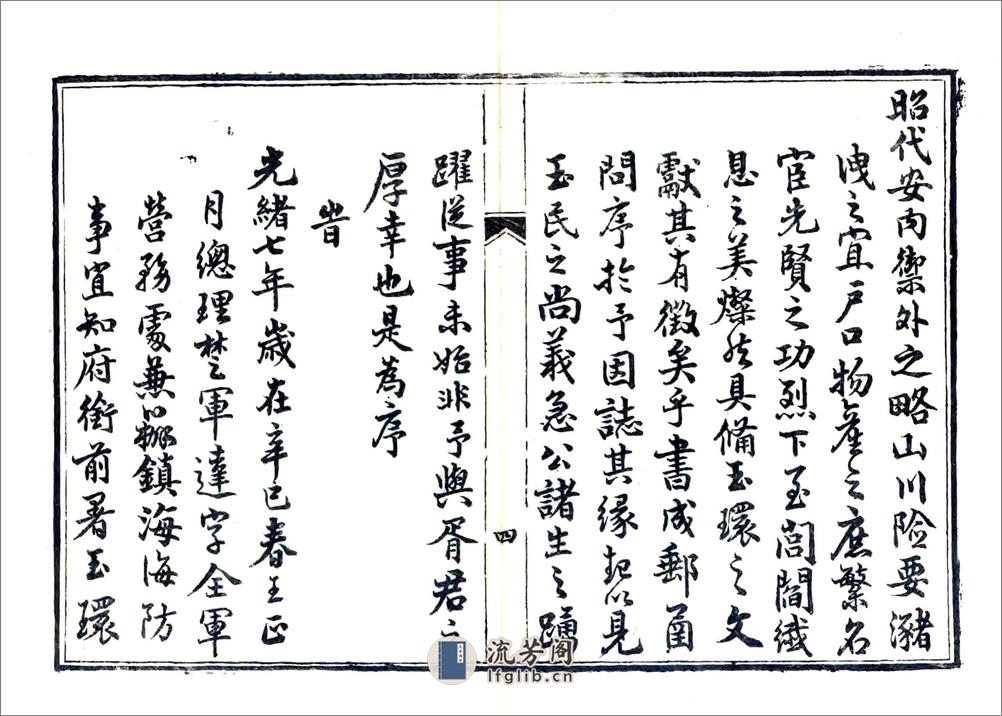 昭代安內禦外之略山川險要瀦
洩之宜戶口物產之庶繁名
宦先賢之功烈下至閭閻纖
息之美燦然具備玉環之文
獻其有徵矣乎書成郵函
問序於予因誌其緣起以見
玉民之尚義急公諸生之踴
四
躍從事未始非予與胥君之
厚幸也是為序
時
光緒七年歲在辛巳春王正
月總理楚軍達字全軍
營務處兼辦鎮海海防
事宜知府銜前署玉環
流芳阁
lfglib.cn